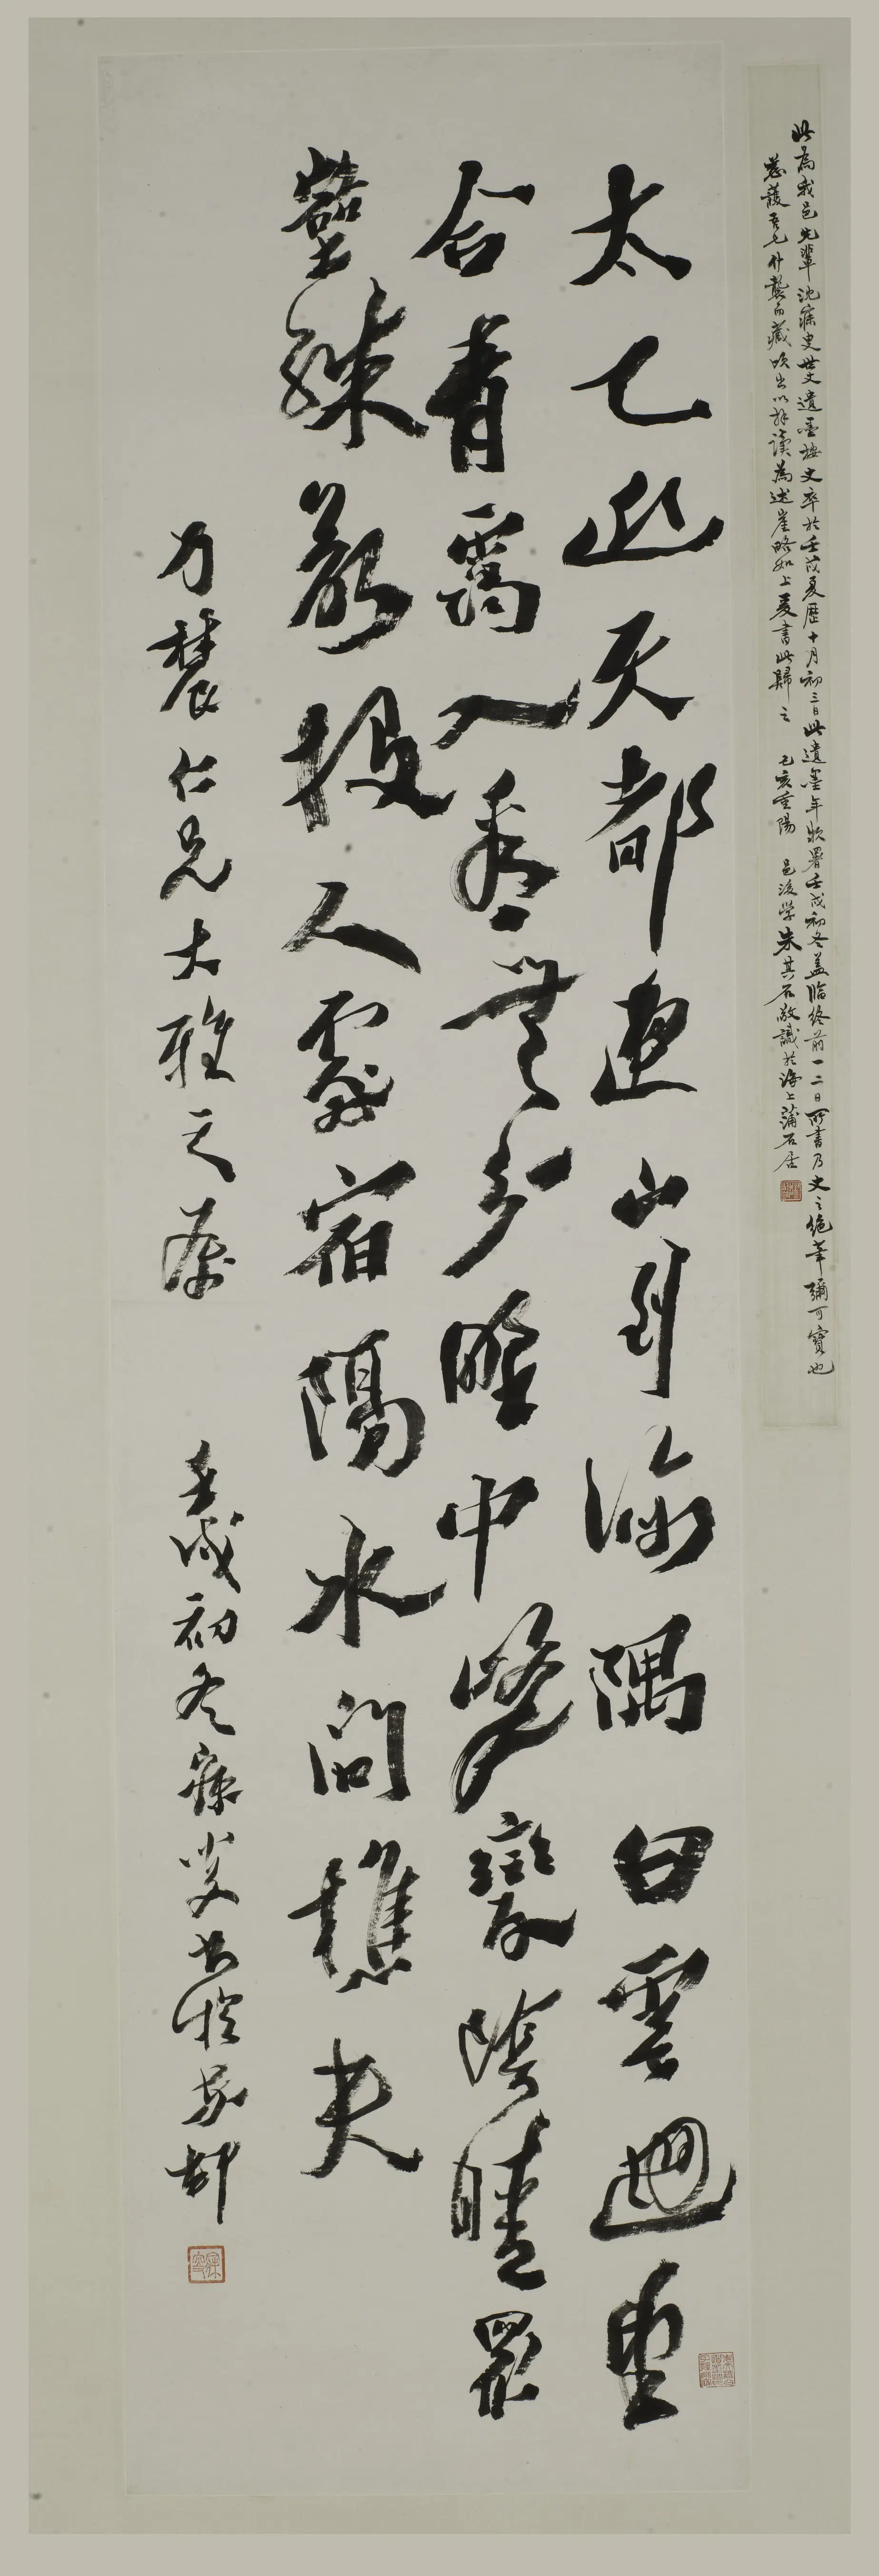 此為我邑先輩沈寐叟世丈遺墨按丈卒於壬戌夏歷十月初三日此遺墨年款署壬戌初冬蓋臨終前一二日所書乃丈之絕筆彌可寶也
慈護吾兄什襲而藏頃出以拜讀為述崖略如上爰書此歸之 己亥重陽 邑後學朱其石敬識於海上蒲石居
太乙近天都連山到海隅白雲迴望
合青靄入看無分埜中峯變陰晴眾
壑殊欲投人處宿隔水問樵夫
乃辳仁兄大雅之屬 壬戌初冬寐叟書於